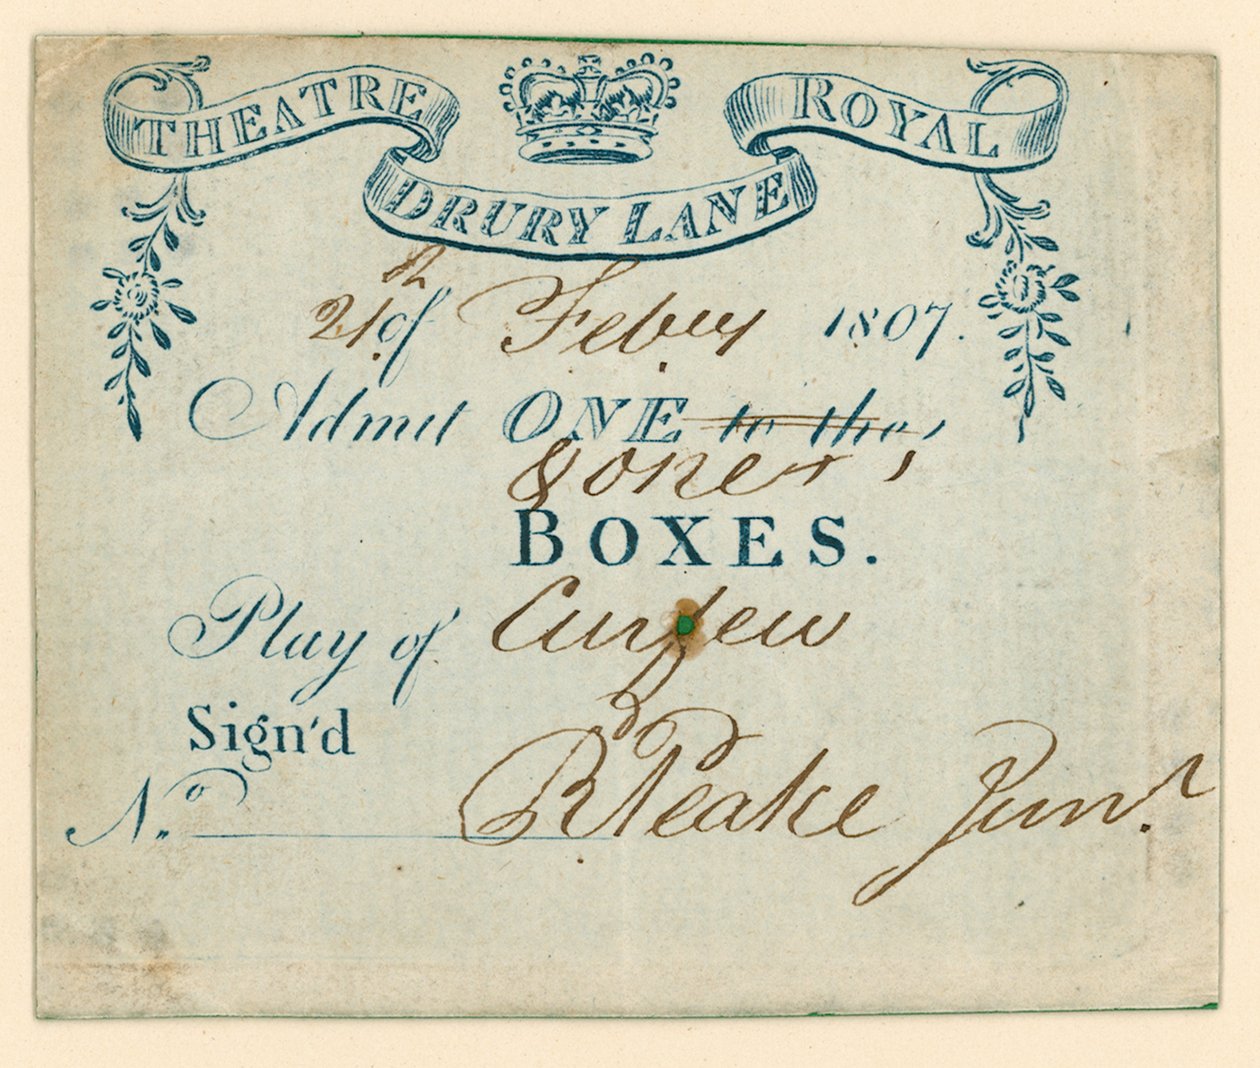 THEATRE ROYAL
DRURY LANE
21st of Febuy 1807.
Admit ONE to the,
& one
BOXES.
Play of Curfew
Sign'd
R Peake Junr.
No.